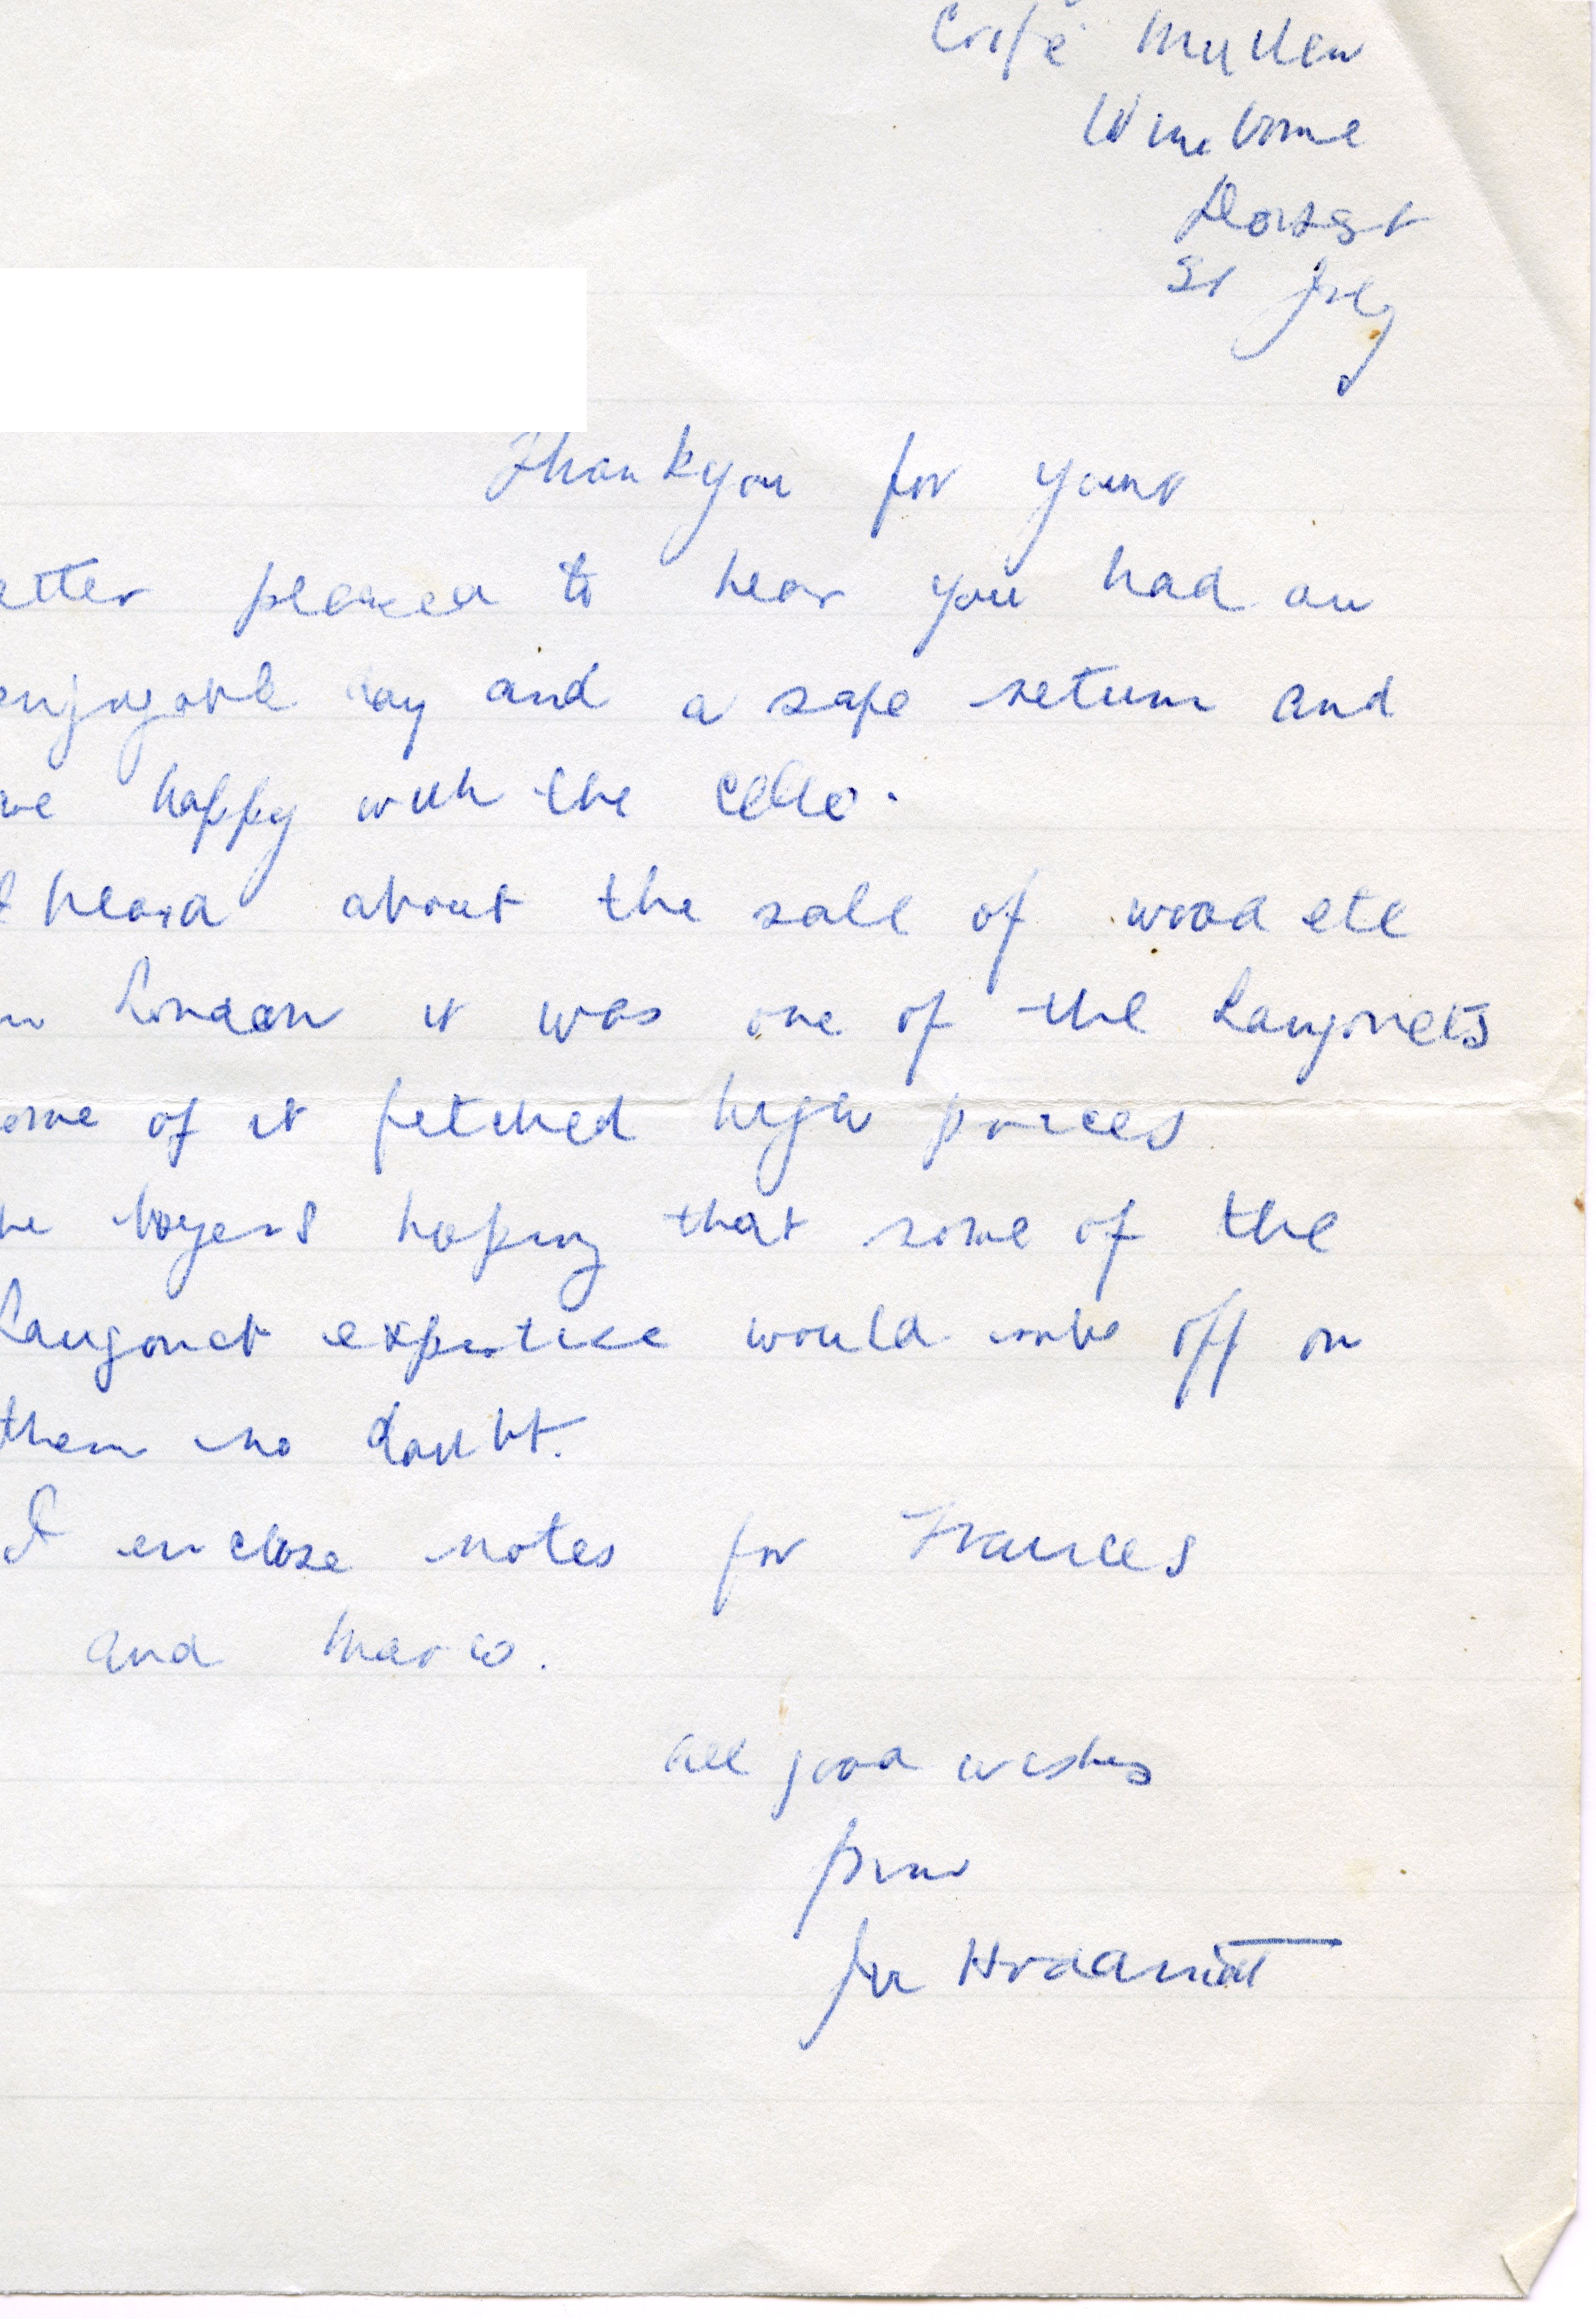 Corfe Mullen
Wimborne
Dorset
31 July
Thankyou for your
etter pleased to hear you had an
enjoyable day and a safe return and
are happy with the cello.
I heard about the sale of wood etc
in London it was one of the Langonets
ome of it fetched high prices
he buyers hoping that some of the
Langonet expertise would rub off on
them no doubt.
I enclose notes for Frances
and Marco.
All good wishes
from